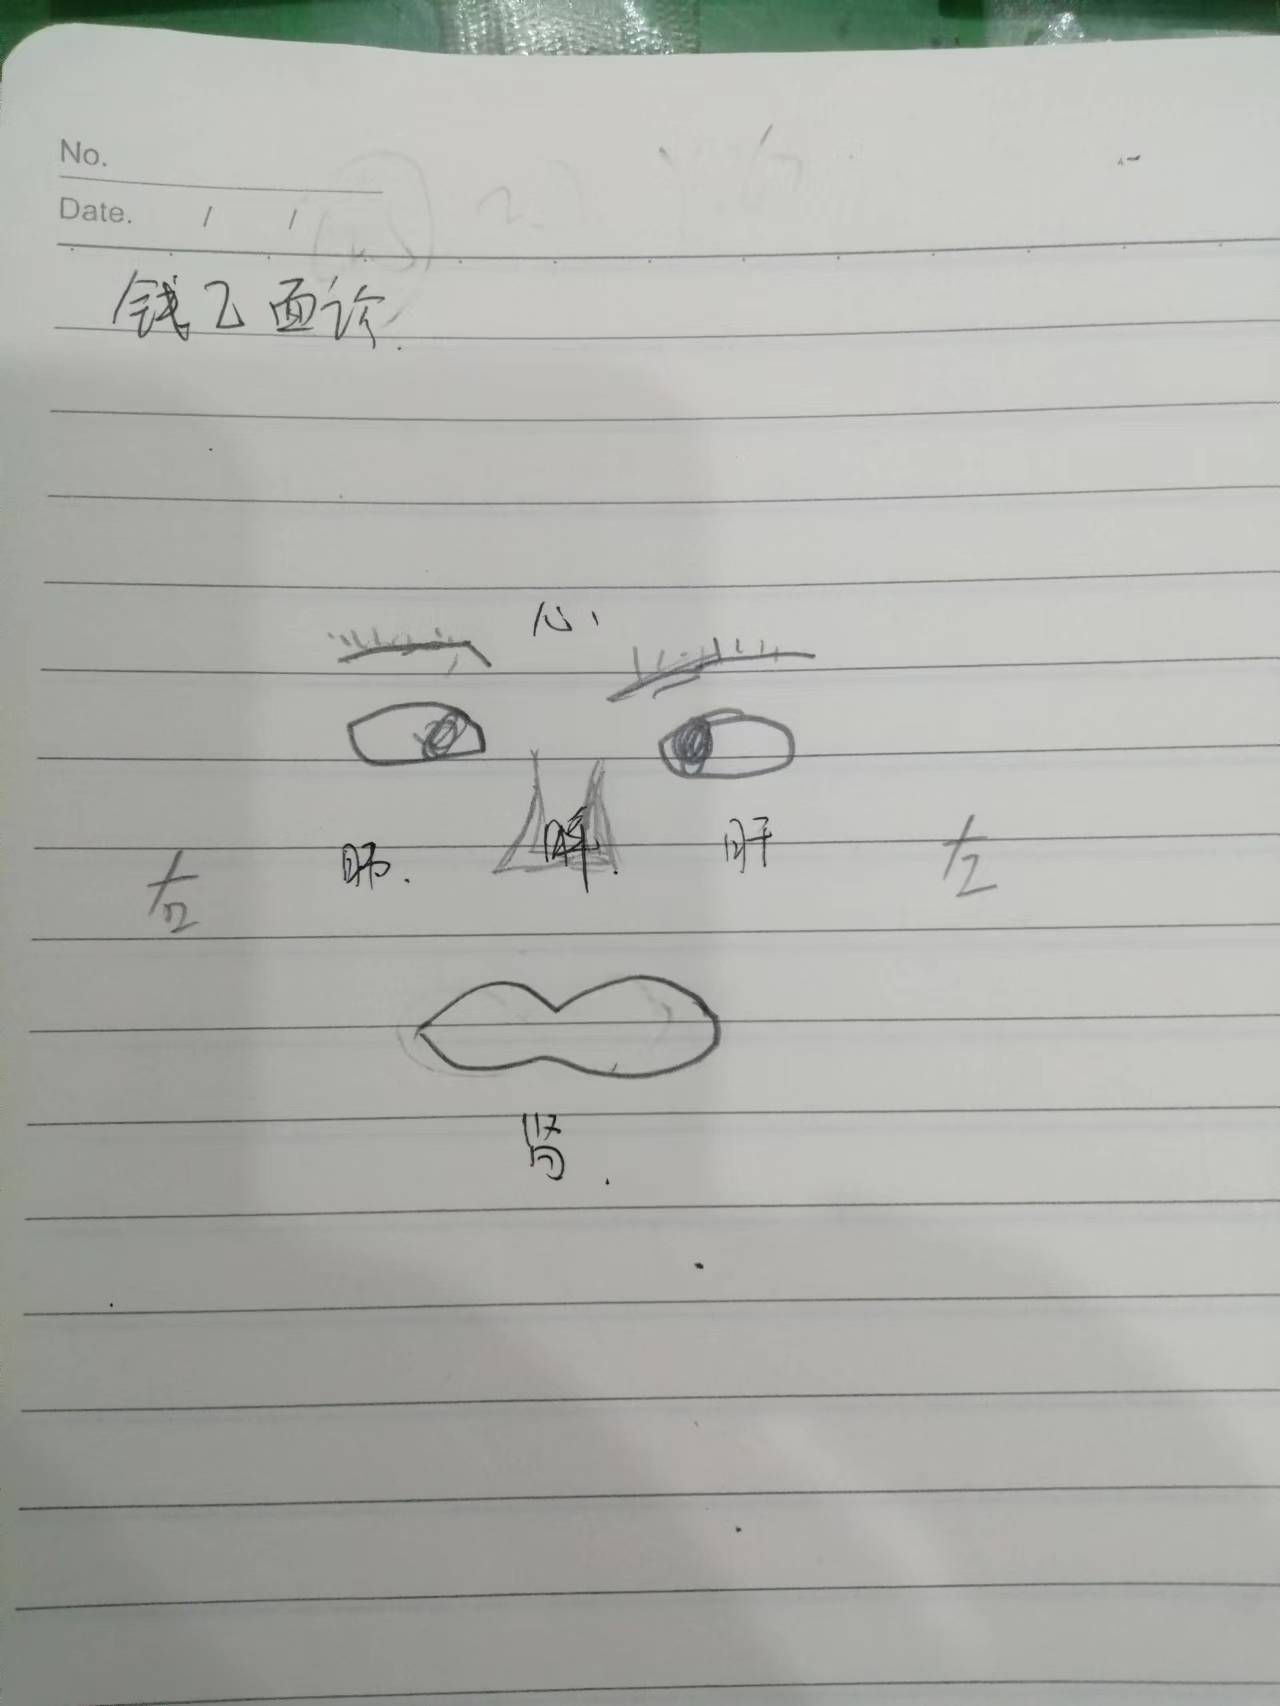 No.
Date. / /
钱乙面诊.
心.
肺. 脾. 肝
右 左
肾.